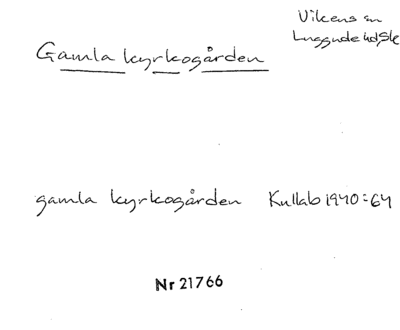 Vikens sn
Luggude hd, Sk
Gamla kyrkogården
gamla kyrkogården Kullab 1940:64
Nr 21766